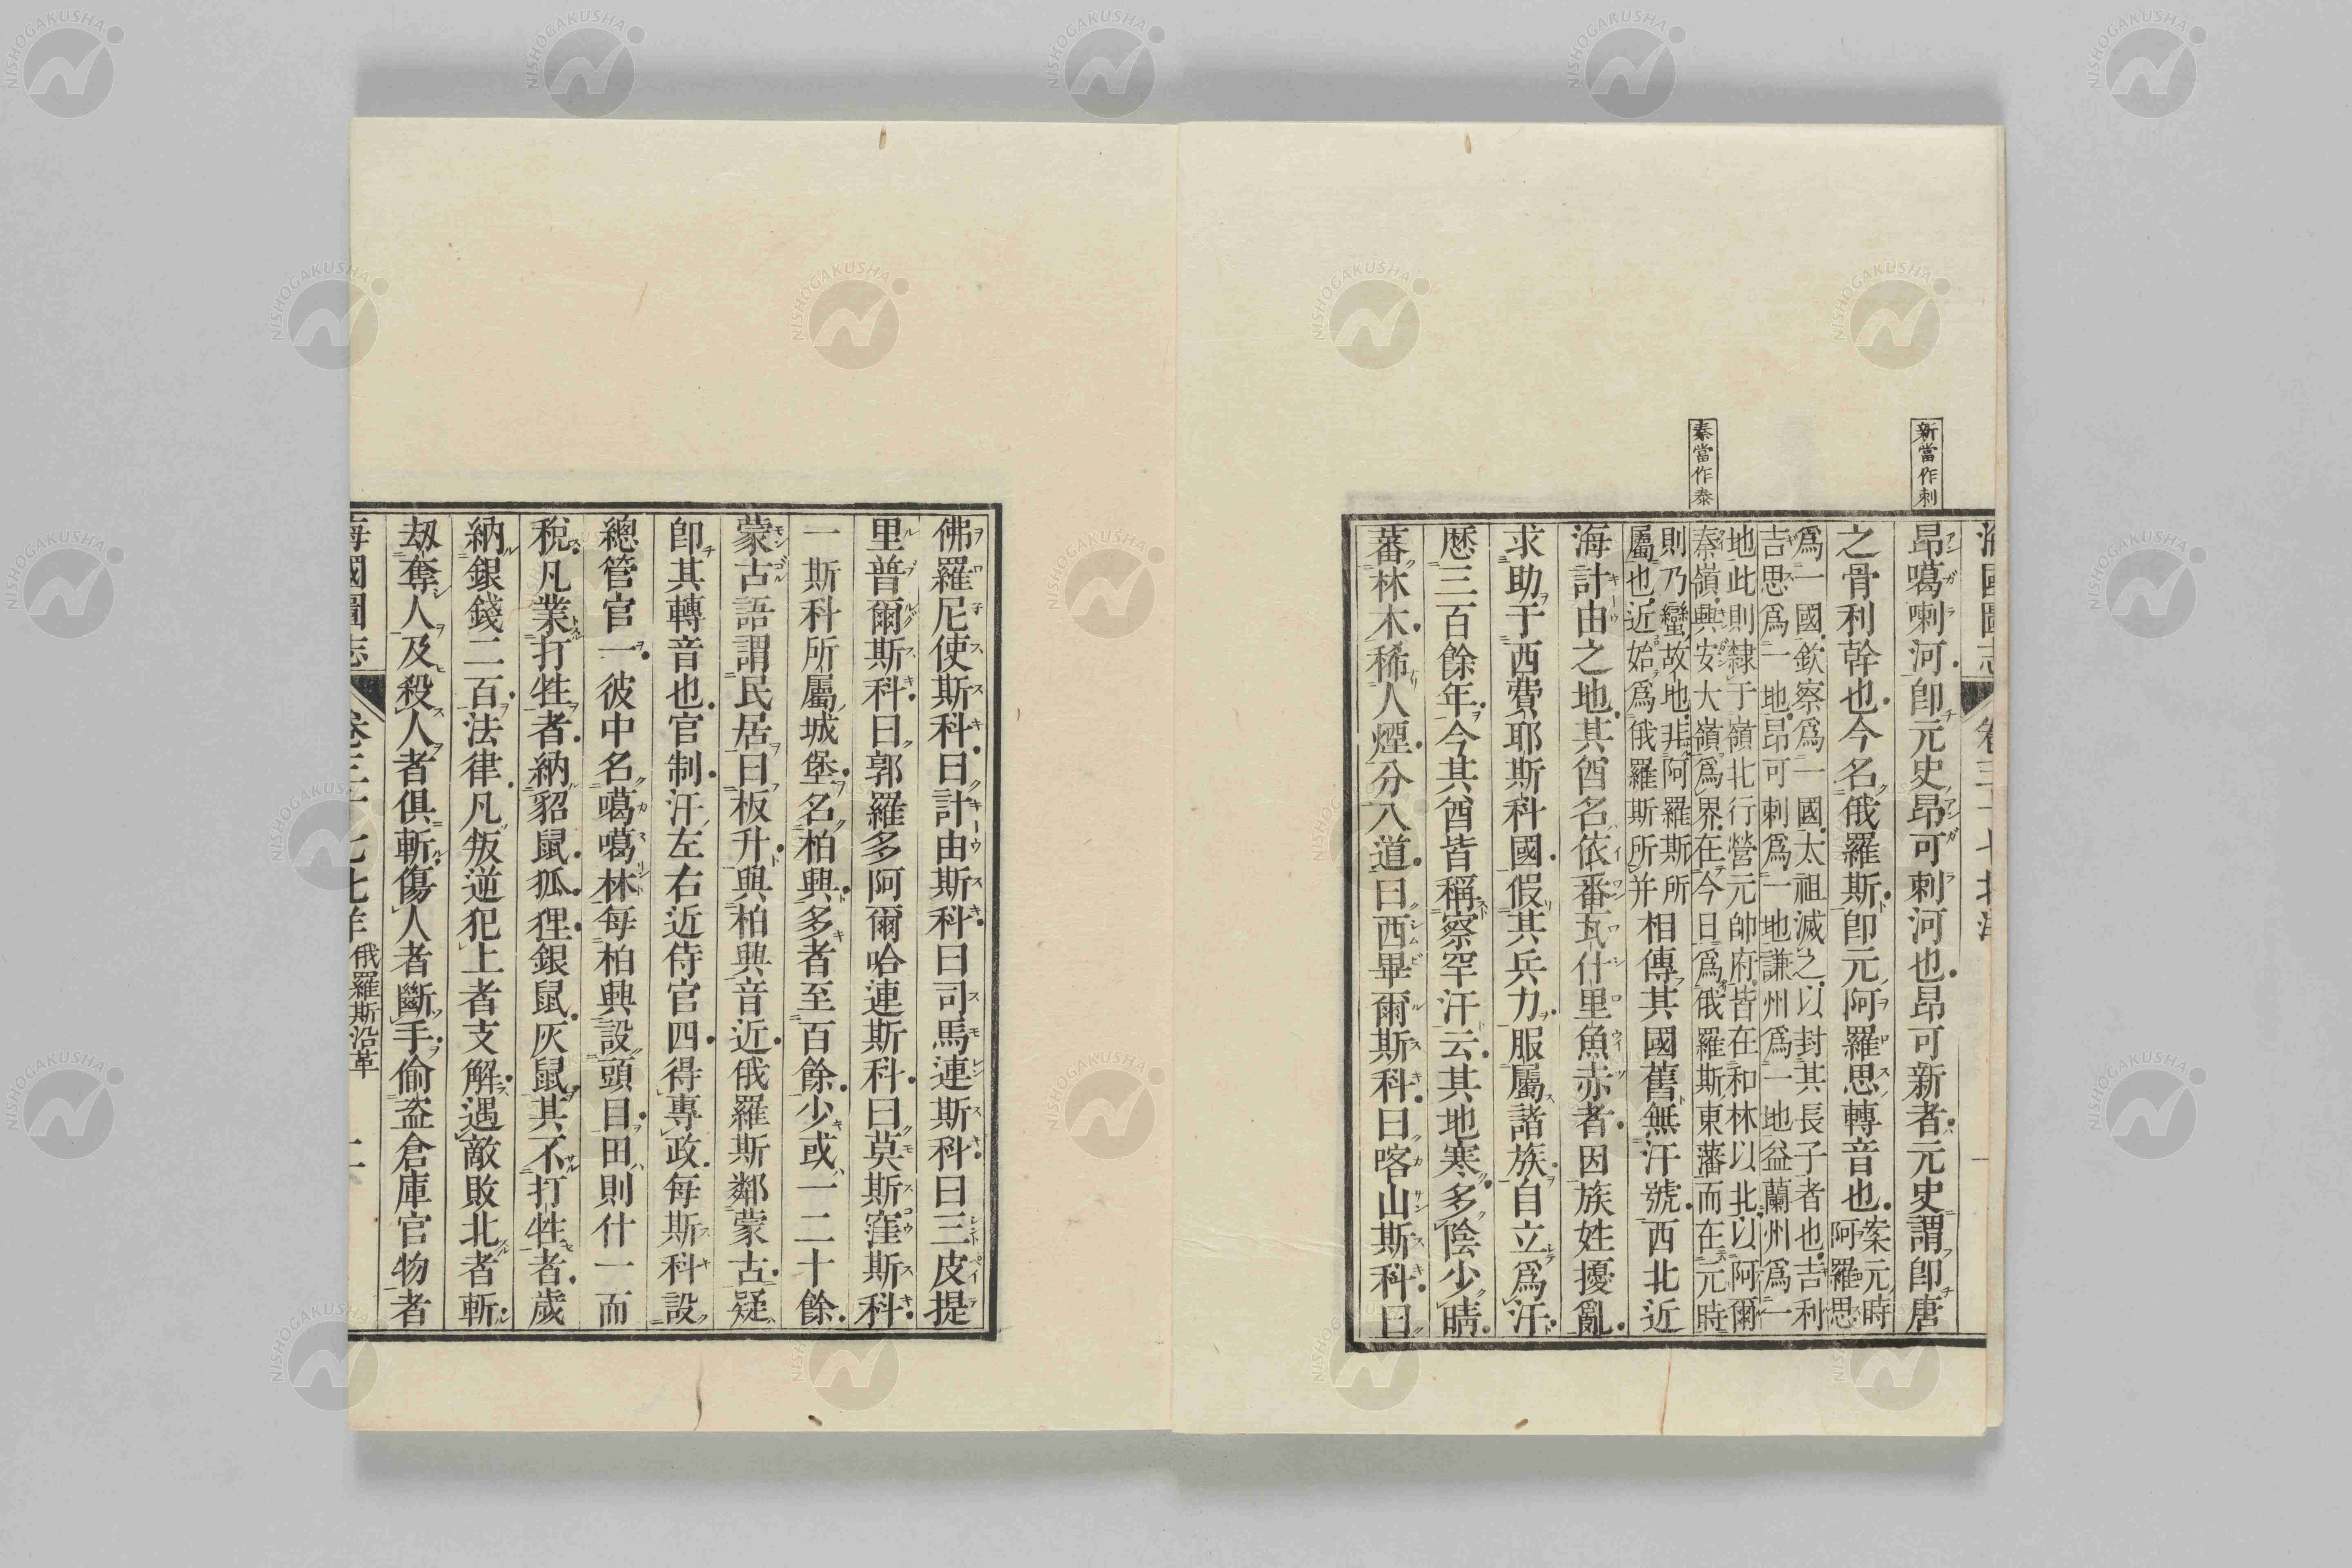 新當作刺
秦當作泰
昂噶喇河卽元史昂可剌河也昂可新者元史謂卽唐
之骨利幹也今名俄羅斯卽元阿羅思轉音也案元時阿羅思
爲一國欽察爲一國太祖滅之以封其長子者也吉利
吉思爲一地昂可剌爲一地謙州爲一地益蘭州爲一
地此則隸于嶺北行營元帥府皆在和林以北以阿爾
秦嶺興安大嶺爲界在今日爲俄羅斯東藩而在元時
則乃蠻故地非阿羅斯所
屬也近始爲俄羅斯所并
相傳其國舊無汗號西北近
海計由之地其酋名依番瓦什里魚赤者因族姓擾亂
求助于西費耶斯科國假其兵力服屬諸族自立爲汗
歷三百餘年今其酋皆稱察罕汗云其地寒多陰少晴
蕃林木稀人煙分八道曰西畢爾斯科曰喀山斯科曰
佛羅尼使斯科曰計由斯科曰司馬連斯科曰三皮提
里普爾斯科曰郭羅多阿爾哈連斯科曰莫斯窪斯科
一斯科所屬城堡名柏興多者至百餘少或一二十餘
蒙古語謂民居曰板升與柏興音近俄羅斯鄰蒙古疑
卽其轉音也官制汗左右近侍官四得專政每斯科設
總管官一彼中名噶噶林每柏興設頭目田則什一而
稅凡業打牲者納貂鼠狐狸銀鼠灰鼠其不打牲者歲
納銀錢二百法律凡叛逆犯上者支解遇敵敗北者斬
劫奪人及殺人者俱斬傷人者斷手偷盜倉庫官物者
海國圖志
俄羅斯沿革